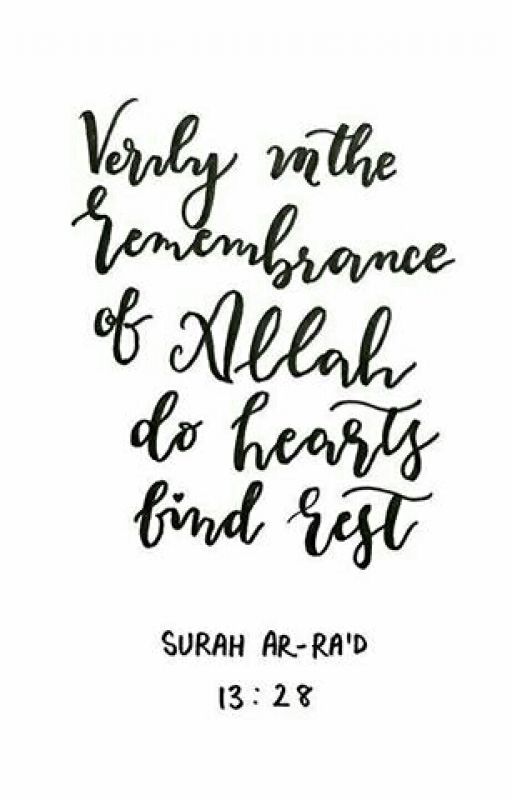 Verily in the
remembrance
of Allah
do hearts
find rest
SURAH AR-RA'D
13:28